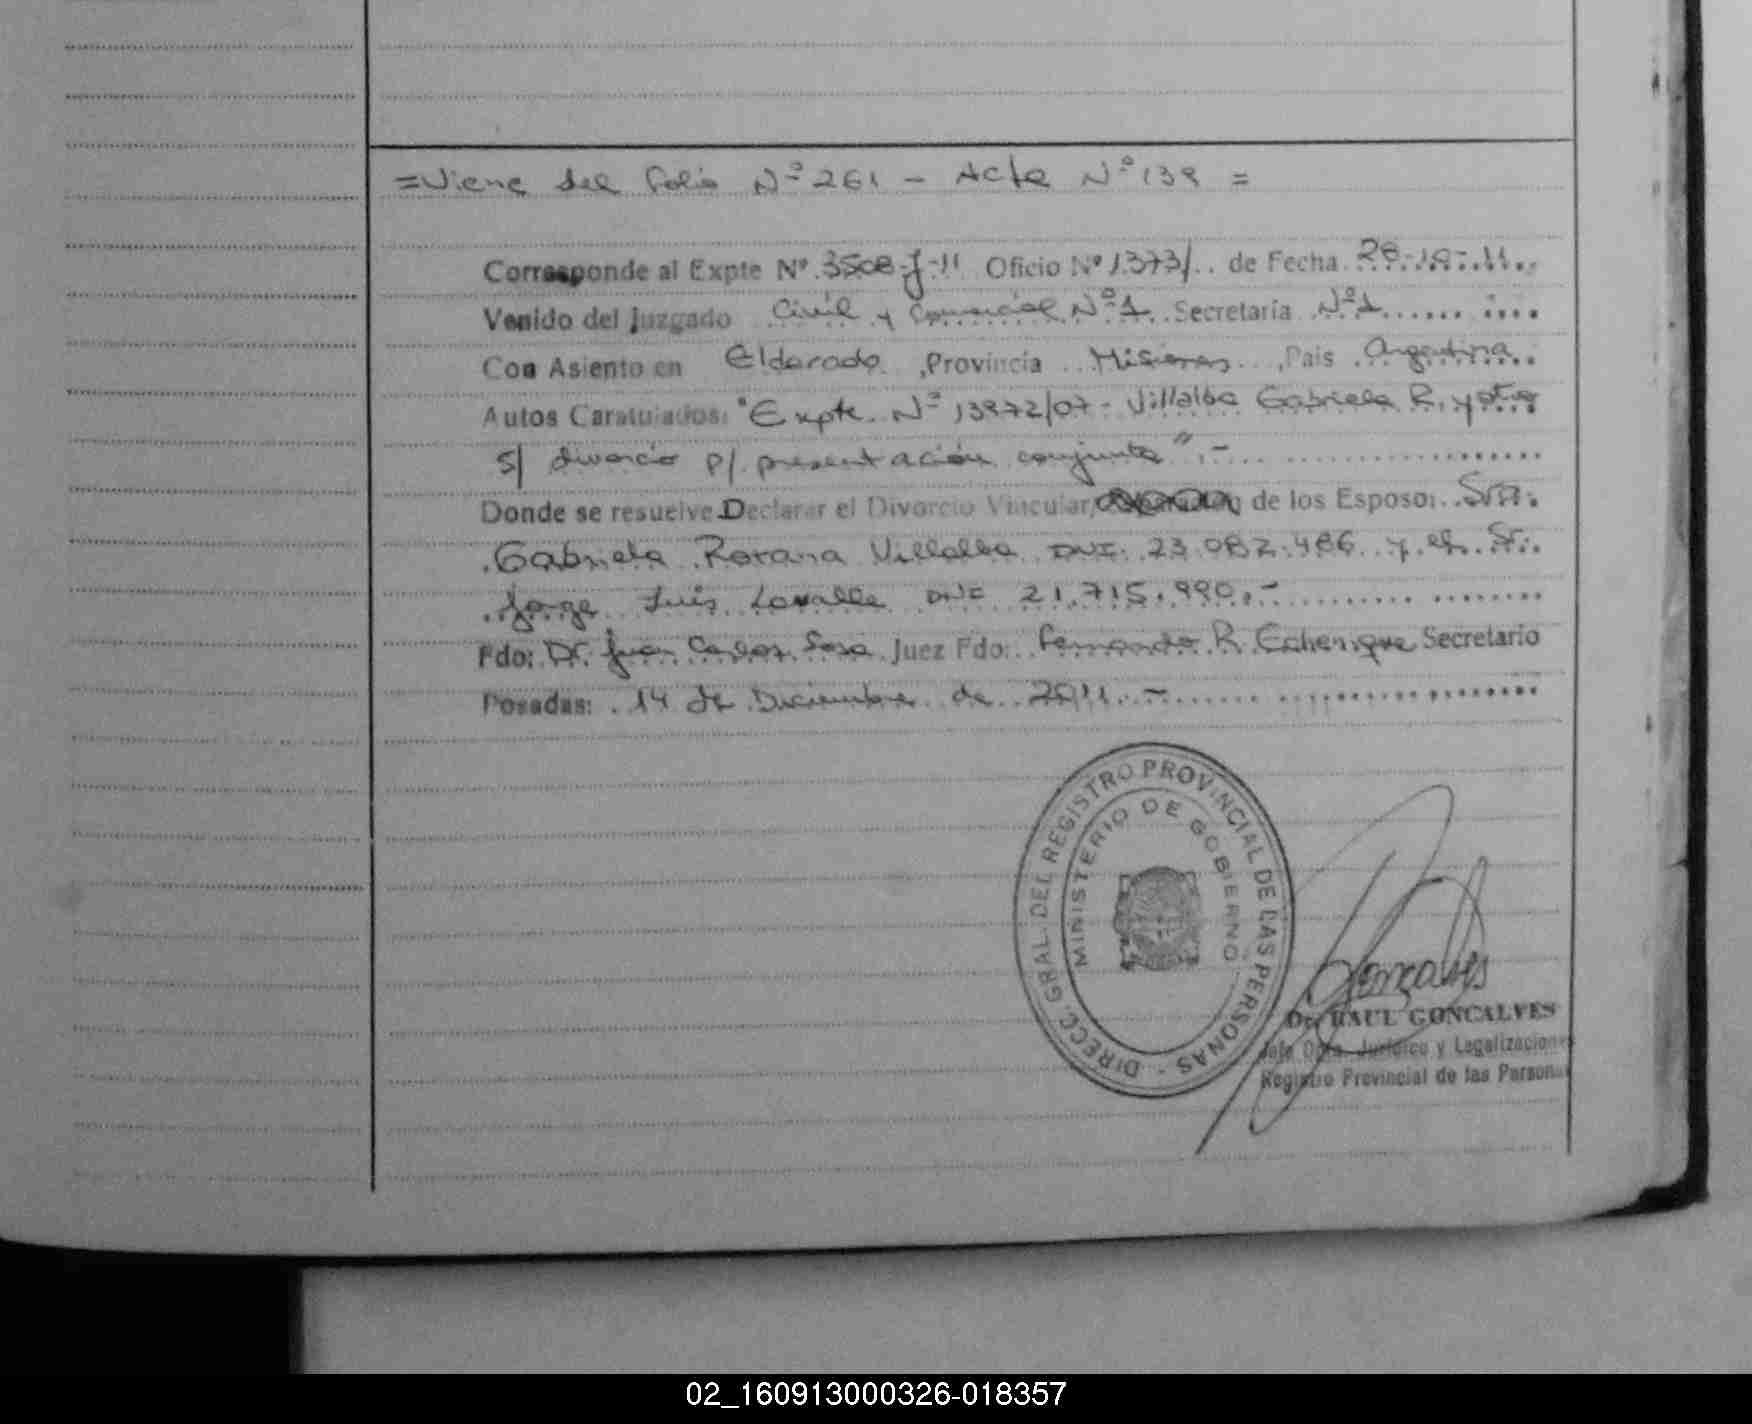 =Viene del folio Nº 261 - Acta Nº 139 =
Corresponde al Expte Nº 3508-J-11 Oficio Nº 1373/.. de Fecha 28-10-11
Venido del Juzgado Civil y Comercial Nº 1 Secretaría Nº 1
Con Asiento en Eldorado, Provincia Misiones, País Argentina
Autos Caratulados: "Expte Nº 13972/07- Villalba Gabriela R. y otro
s/ divorcio p/ presentación conjunta".-
Donde se resuelve Declarar el Divorcio Vincular, de los Esposo: Sra.
Gabriela Roxana Villalba DNI: 23.082.486 y el Sr.
Jorge Luis Lavalle DNI: 21.715.990.-
Fdo: Dr. Juan Carlos Sosa Juez Fdo: Fernando R. Echenique Secretario
Posadas: 14 de Diciembre de 2011.-
DIRECC. GRAL. DEL REGISTRO PROVINCIAL DE LAS PERSONAS -
MINISTERIO DE GOBIERNO
Goncalves
Dr. RAUL GONCALVES
Jefe Dpto. Jurídico y Legalizacione
Registro Provincial de las Persona
02_160913000326-018357